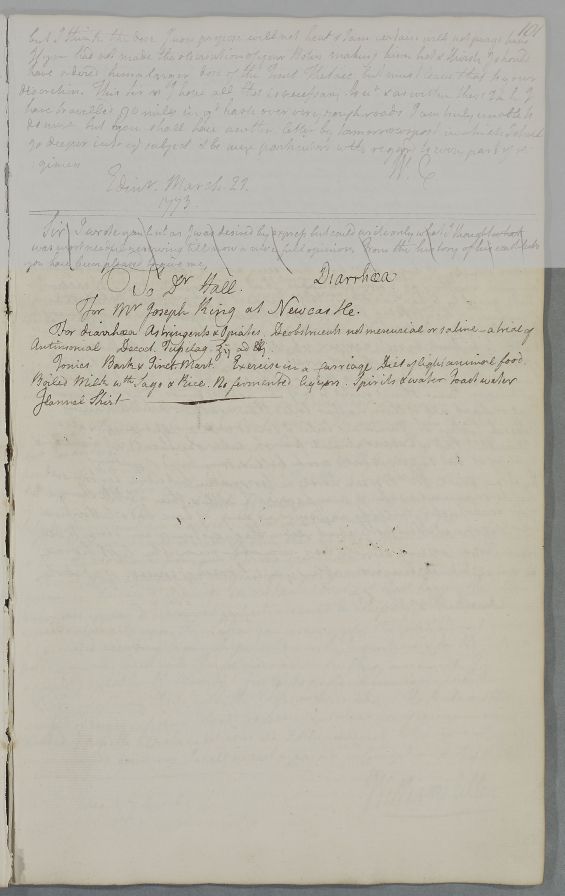 101
but I think the dose I now propose will not heat & I am certain will not purge him
If you had not made the observation of your Bolus making him hot & thirsty I should
have advised him a larger dose of the but must leave that to your
discretion. This Sir is I hope all that is necessary but as within these I
have travelled 90 miles in haste over very rough roads I am truly unable to
do more but you shall have another letter by tomorrows post in which I shall
go deeper into my subject & be more particular with regard to every part of re
gimen W. C
Edinr. March 29.
1773.
Sir I wrote you but as I was desired by express but could write only what I thought what
was most necessary till now a more full opinion. From the history of his
you have been pleased to give me,
To Dr Hall. Diarrhœa
For Mr Joseph King at Newcastle.
For diarrhœa Astringents & Opiates Deobstruents not mercurial or saline – a trial of
Antimonial Decoct. Tussilag.
Tonics Bark & Tinct. Mart. Exercise in a Carriage Diet of light animal food.
Boiled Milk wth Sago & Rice. No fermented liquors. Spirits & water Toast water
Flannel Shirt